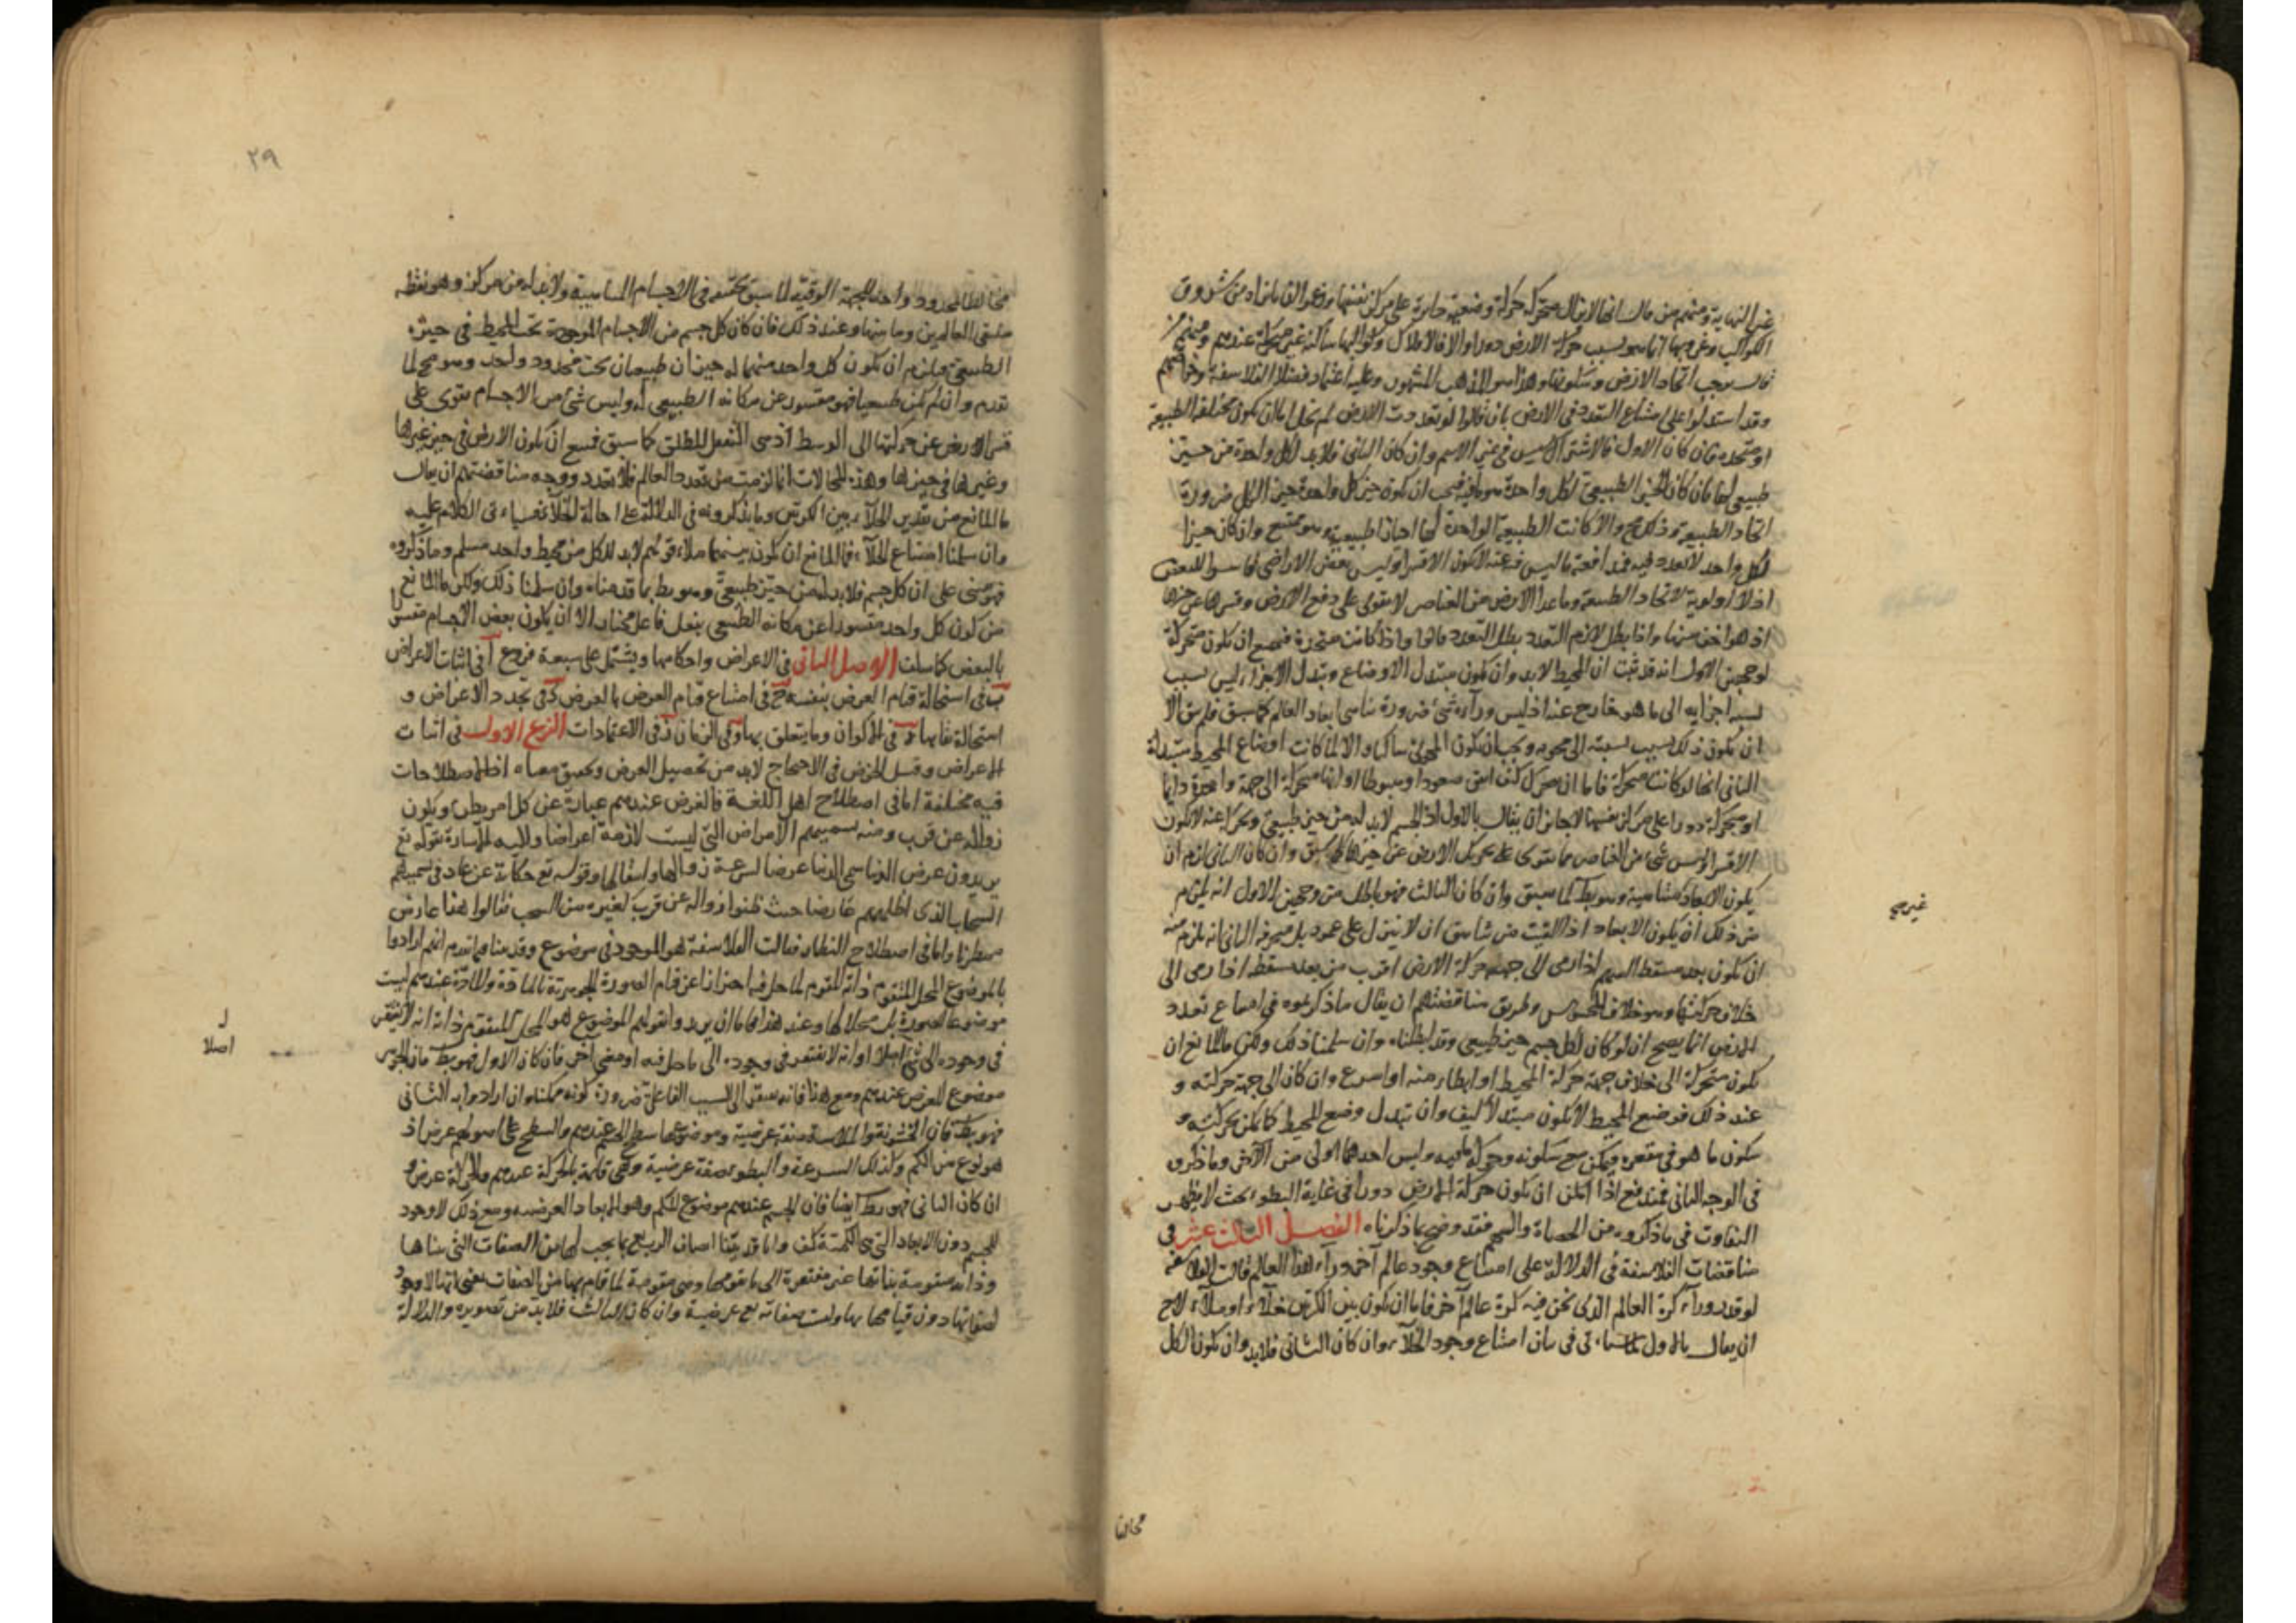 غير النهاية ومنهم من قال انها لا تزال متحركة حركة وضعية دايرة على مركز نفسها وزعموا ان ما نراه من شروق
الكواكب وغروبها انما هو بسبب حركة الارض دورا والا فالافلاك وكواكبها ساكنة غير متحركة عندهم ومنهم من
قال بوجوب اتحاد الارض وسكونها وهذا هو المذهب المشهور وعليه اعتماد فضلاء الفلاسفة
وقد استدلوا على امتناع التعدد في الارض بان قالوا لو تعددت الارض لم تخل اما ان تكون مختلفة الطبيعة
او متحدة فان كان الاول فالاشتراك ليس في غير الاسم وان كان الثاني فلا بد لكل واحدة من حيز
طبيعي لها فان كان الحيز الطبيعي لكل واحدة فيجب ان يكون حيز كل واحدة حيز الكل ضرورة
اتحاد الطبيعة وذلك مح والا كانت الطبيعة الواحدة لها احياز طبيعية وهو ممتنع وان كان حيزا
لكل واحد لا تعدد فيه ليس بعض الاراضي
اذ لا اولوية لاتحاد الطبيعة وما عدا الارض من العناصر لا يقوى على دفع الارض وقسرها عن حيزها
اذ هو اخف منها واذا بطل لازم التعدد بطل التعدد قالوا واذا كانت متحدة فيمتنع ان تكون متحركة
لوجهين الاول انه قد ثبت ان المحيط لا بد وان يكون متبدل الاوضاع وتبدل الاجزاء ليس بسبب
نسبة اجزايه الى ما هو خارج عنه اذ ليس وراءه شئ ضرورة تناهي ابعاد العالم كما سبق فلم يبق الا
ان يكون ذلك بسبب نسبته الى محويه ويجب ان يكون المحوى ساكنا والا لما كانت اوضاع المحيط متبدلة
الثاني انها لو كانت متحركة فاما ان تتحرك كيف اتفق صعودا وهبوطا او انها متحركة الى جهة واحدة دايما
او متحركة دورا على مركز نفسها لا جايز ان يقال بالاول اذ الجسم لا بد له من حيز طبيعي وتحركه عنه لا يكون
الا قسرا وليس شئ من العناصر مما يقوى على تحريك الارض عن حيزها كما سبق وان كان الثاني لزم ان
يكون الابعاد متناهية وهو بط كما سبق وان كان الثالث فهو باطل من وجهين الاول انه يلزم
من ذلك ان يكون الابعاد اذا القيت من شاهق ان لا تنزل على عمود بل منحرفة الثاني انه يلزم منه
ان يكون بعد مسقط السهم اذا رمى الى جهة حركة الارض اقرب من بعد مسقطه اذا رمى الى
خلاف حركتها وهو خلاف المحسوس وطريق مناقضتهم ان يقال ما ذكرتموه في امتناع تعدد
الارض انما يصح ان لو كان لكل جسم حيز طبيعي وقد ابطلناه وان سلمنا ذلك ولكن ما المانع ان
تكون متحركة الى خلاف جهة حركة المحيط او ابطا منه او اسرع وان كان الى جهة حركته و
عند ذلك فوضع المحيط لا يكون متبدلا كيف وان تبدل وضع المحيط كما يمكن بحركته و
سكون ما هو في مقعره فيمكن مع سكونه وحركة ما فيه وليس احدهما اولى من الآخر وما ذكروه
في الوجه الثاني فمندفع اذا امكن ان يكون حركة الارض دورا في غاية البطو بحيث لا يظهر
التفاوت في ما ذكروه من الحصاة والسهم فقد وضح بما ذكرناه الفصل الثالث عشر في
مناقضات الفلاسفة في الدلالة على امتناع وجود عالم آخر وراء هذا العالم قالت الفلاسفة
لو قدر وراء كرة العالم الذي نحن فيه كرة عالم آخر فاما ان يكون بين الكرتين خلاء او ملاء لا جايز
ان يقال بالاول لما سيأتي في بيان امتناع وجود الخلاء وان كان الثاني فلا بد وان يكون للكل
غير مح
مخالفا
٢٩
محيطا لمحدود واحد للجهة الفوقية لما سبق تحقيقه في الاجسام السمائية ولا بد له من مركز وهو نقطة
ملتقى العالمين وما بينهما وعند ذلك فان كان كل جسم من الاجسام الموجودة تحت المحيط في حيزه
الطبيعي فيلزم ان يكون كل واحد منهما له حيزان طبيعيان تحت محدود واحد وهو مح لما
تقدم وان لم يكن طبيعيا فهو مقسور عن مكانه الطبيعي له وليس شئ من الاجسام يقوى على
قسر الارض عن حركتها الى الوسط اذ هي الثقيل المطلق كما سبق فيمتنع ان تكون الارض في حيز غيرها
وغيرها في حيزها وهذه المحالات انما لزمت من تعدد العالم فلا تعدد ووجه مناقضتهم ان يقال
ما المانع من تقدير الخلاء بين الكرتين وما يذكرونه في الدلالة على احالة الخلاء فسياتي الكلام عليه
وان سلمنا امتناع الخلاء فما المانع ان يكون بينهما ملاء قولهم لا بد للكل من محيط واحد مسلم وما ذكروه
فهو مبنى على ان كل جسم فلا بد له من حيز طبيعي وهو بط بما قدمناه وان سلمنا ذلك ولكن ما المانع
من كون كل واحد مقسورا عن مكانه الطبيعي بفعل فاعل مختار لا ان يكون بعض الاجسام مقسرا
بالبعض كما سلف الاصل الثاني في الاعراض واحكامها ويشتمل على سبعة فروع آ في اثبات الاعراض
ب في استحالة قيام العرض بنفسه ج في امتناع قيام العرض بالعرض د في تجدد الاعراض و
استحالة بقايها ه في الاكوان وما يتعلق بها و في الزمان ز في الاعتمادات الفرع الاول في اثبات
الاعراض وقبل الخوض في الاحتجاج لا بد من تحصيل العرض وتحقيق معناه اذ الاصطلاحات
فيه مختلفة اما في اصطلاح اهل اللغة فالعرض عندهم عبارة عن كل امر يطرئ ويكون
زواله عن قرب ومنه تسميتهم الامراض التي ليست لازمة اعراضا واليه الاشارة بقوله تع
يريدون عرض الدنيا سمى الدنيا عرضا لسرعة زوالها وانتقالها وقوله تع حكاية عن عاد في تسميتهم
السحاب الذي اظلهم عارضا حيث ظنوا زواله عن قرب كغيره من السحب فقالوا هذا عارض
ممطرنا واما في اصطلاح النظار فقالت الفلاسفة هو الموجود في موضوع وقد بينا فيما تقدم انهم ارادوا
بالموضوع المحل المتقوم ذاته المقوم لما حل فيه احترازا عن قيام الصورة الجوهرية بالمادة والمادة عندهم ليست
موضوعا للصورة بل محلا لها وعند هذا فاما ان يريدوا بقولهم الموضوع هو المحل المتقوم ذاته انه لا يفتقر
في وجوده الى شئ اصلا او انه لا يفتقر في وجوده الى ما حل فيه او معنى اخر فان كان الاول فهو بط فان الجوهر
موضوع للعرض عندهم ومع هذا فانه يفتقر الى السبب الفاعل ضرورة كونه ممكنا وان ارادوا به الثاني
فهو بط فان الخشونة والملاسة صفة عرضية وموضوعها سطح الجسم عندهم والسطح على اصولهم عرض اذ
هو نوع من الكم وكذلك السرعة والبطو صفة عرضية وهى قايمة بالحركة عندهم والحركة عرض و
ان كان الثاني فهو بط ايضا فان الجسم عندهم موضوع للكم وهو الابعاد العرضية ومع ذلك لا وجود
للجسم دون الابعاد التي هى الكمية كيف وانا قد بينا اصناف البديع بما يجب لها من الصفات التي بيناها
وذاته متقومة بذاتها غير مفتقرة الى ما يقومها وهى مقومة لما قام بها من الصفات بمعنى انه لا وجود
لصفاتها دون قيامها بها وليست صفاته تع عرضية وان كان الثالث فلا بد من تصويره والدلالة
اصلا